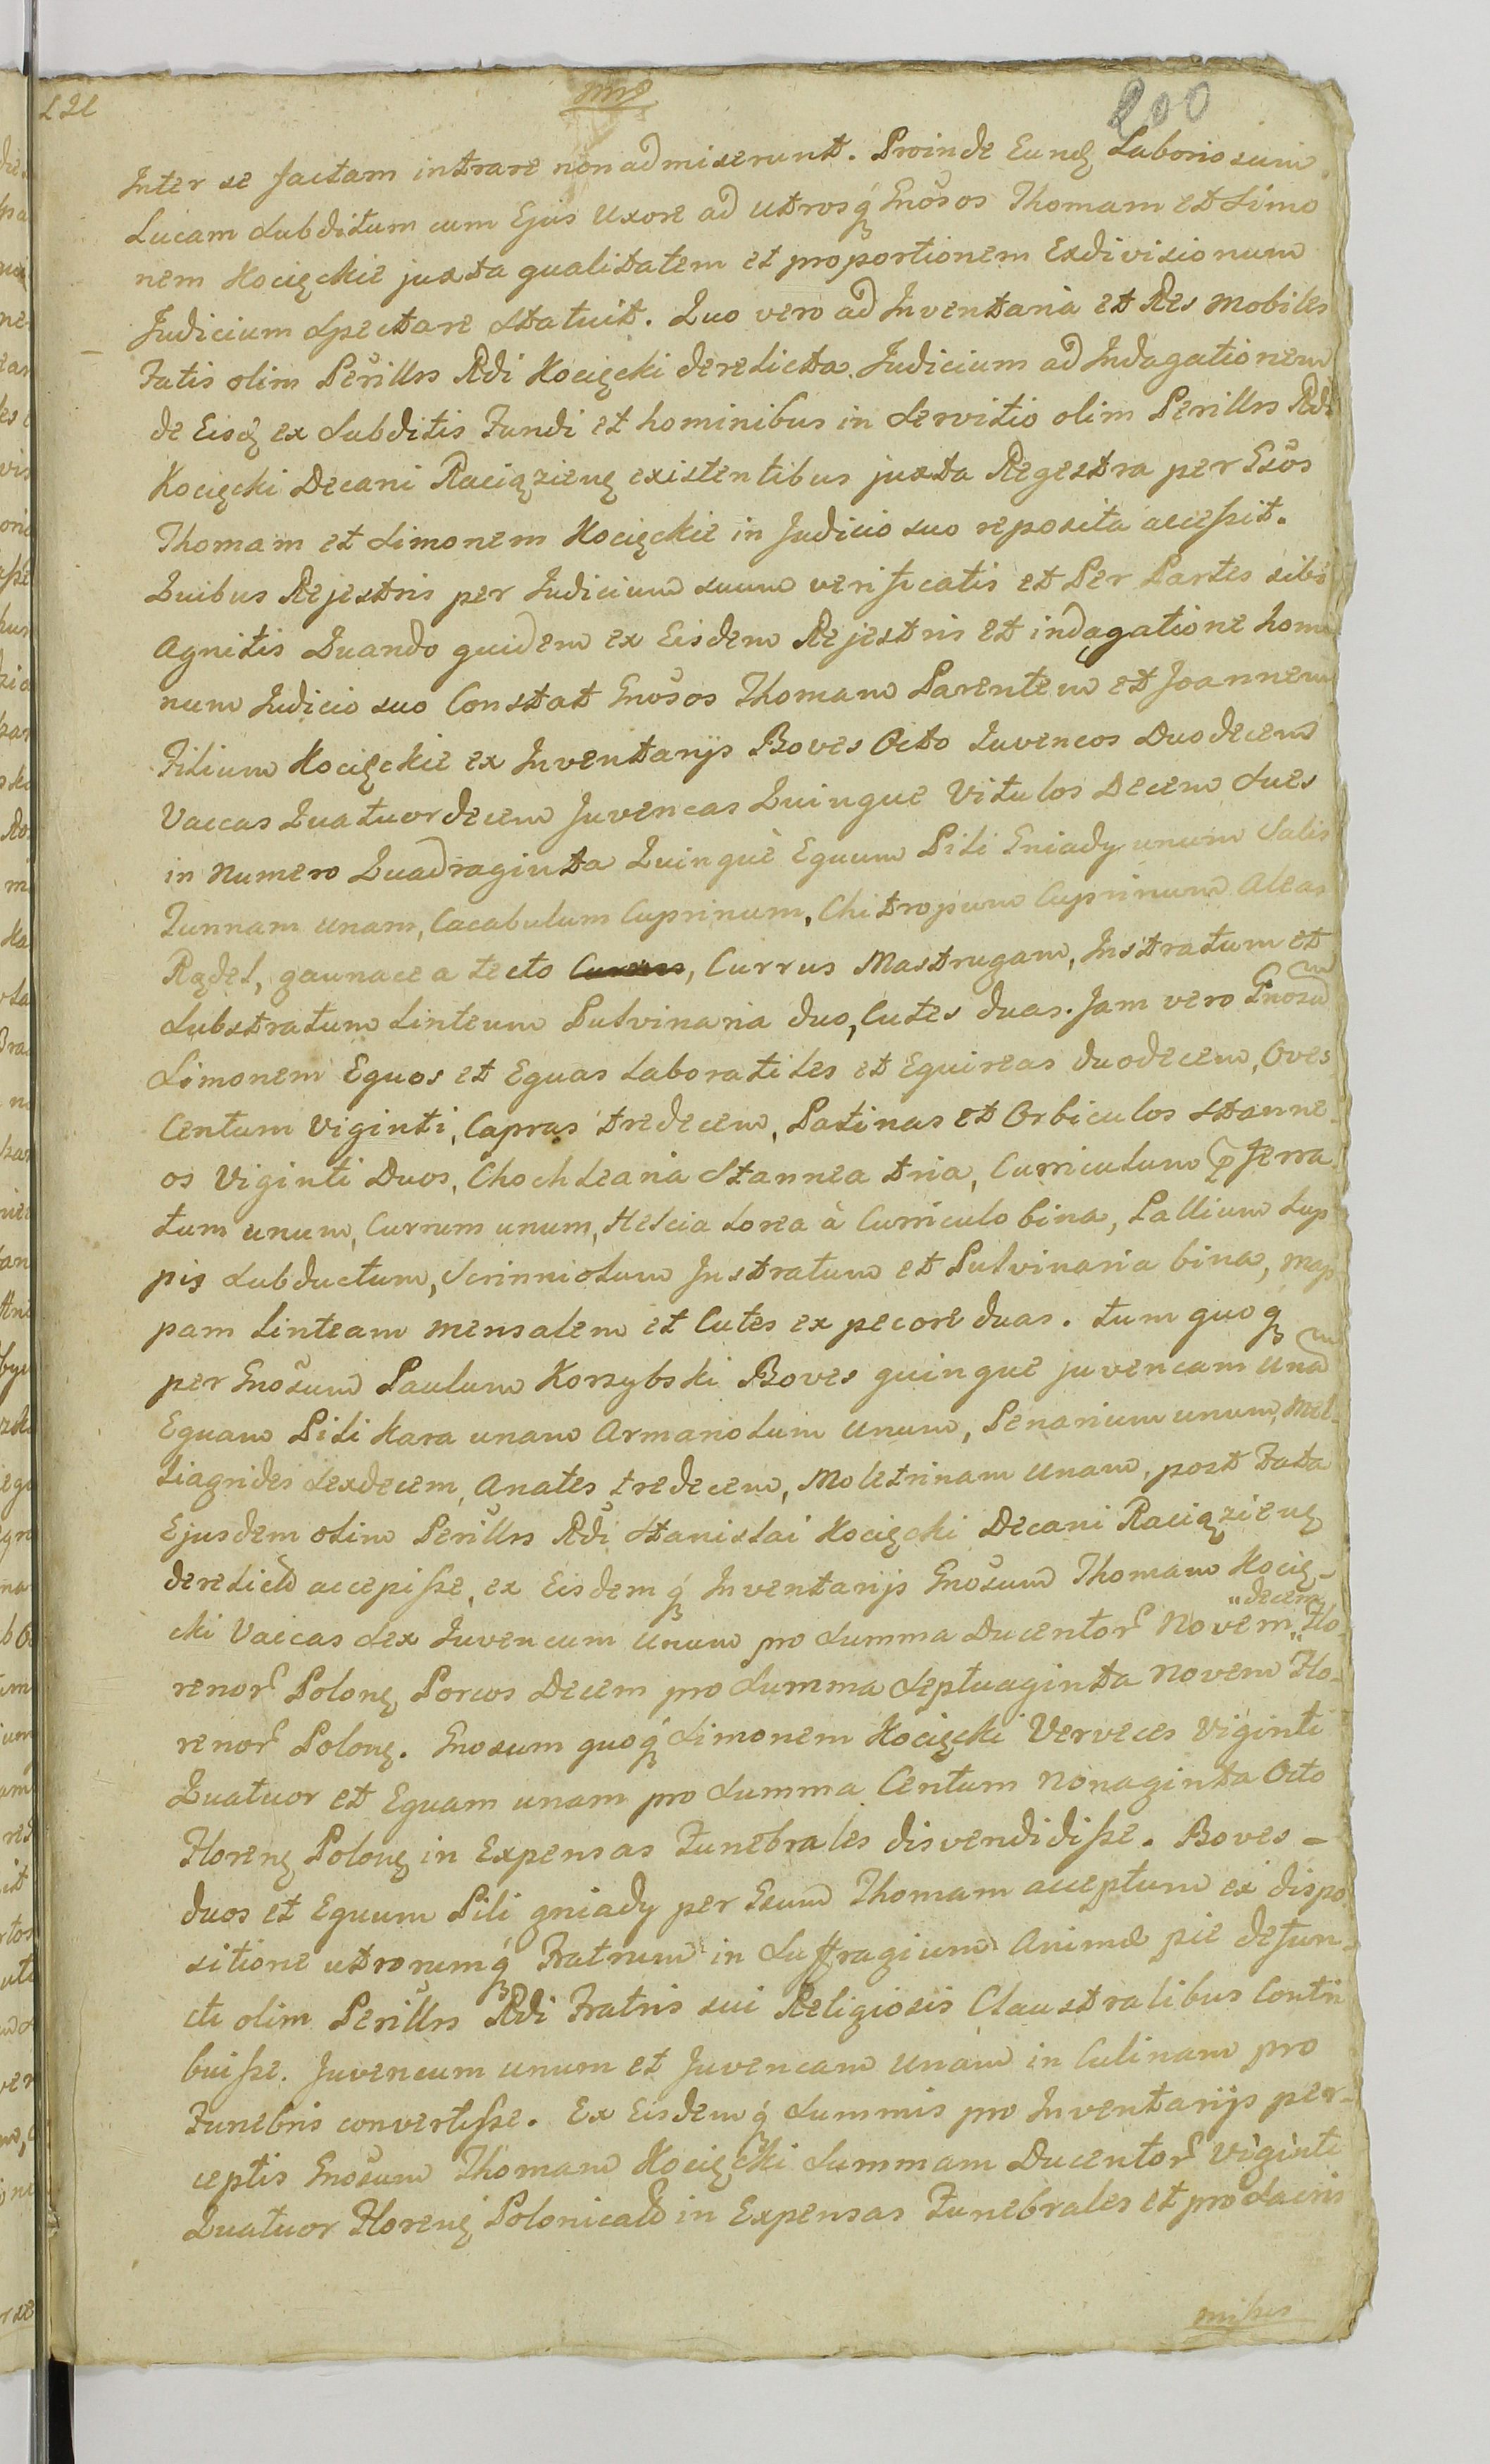 200
Inter se factam intrare non admiserunt. Proinde Eundę Laboriosum
Lucam Subditum cum Ejus Uxore ad utrosq́ Gnosos Thomam et Simo
nem Kocięckie juxta qualitatem et proportionem Exdivisionum
Judicium Spectare Statuit. Quo vero ad Inventaria et Res Mobiles
Fatis olim Perillrs Rdi Kocięcki derelicta Judicium ad Indagationem
de Eisdę ex Subditis Fundi et hominibus in Servitio olim Perillrs Rdi
Kocięcki Decani Raciązienę existentibus juxta Regestra per Gsos
Thomam et Simonem Kocięckie in Judicio suo reposita accessit.
Quibus Rejestris per Judicium suum verificatis et Per Partes sibi
Agnitis Quando quidem ex Eisdem Rejestris et indagatione homi
num Judicio suo Constat Gnosos Thomam Parentem et Joannem
Filium Kocięckie ex Inventarijs Boves Octo Juvencos Duodecem
Vaccas Quatuordecem Juvencas Quinque Vitulos Decem Sues
in Numero Quadraginta Quinque Equum Pili Gniady unum Salis
Tunnam unam, Cacabulum Cuprinum, Chitropum Cuprinum Aleas
Rądel, gaunacea tecto, Currus Mastrugam, Instratum et
Substratum Linteum Pulvinaria duo, Cutes duas. Jam vero Gnosum
Simonem Equos et Equas Laboratiles et Equireas duodecem, Oves
Centum Viginti, Capras tredecem, Patinas et Orbiculos Stanne
os Viginti Duos, Chochlearia Stannea tria, Curriculum p ferra
tum unum, Currum unum, Helcia Lorea à Curriculo bina, Pallium Lup
pis Subductum, Scrinniolum Instratum et Pulvinaria bina, Map
pam Linteam mensalem et Cutes ex pecore duas. Tum quoq́
per Gnosum Paulum Korzybski Boves quinque juvencam unam
Equam Pili Kara unam Armariolum unum, Penarium unum, Mel-
liagrides Sexdecem, Anates tredecem, Moletrinam Unam, post Fata
Ejusdem olim Perillrs Rdi Stanislai Kocięcki Decani Raciązienę
derelicta accepisse, ex Eisdemq́ Inventarijs Gnosum Thomam Kocię-
cki Vaccas Sex Juvencum Unum pro Summa Ducentor Novem "decem" Flo-
renor Polonę Porcos Decem pro Summa Septuaginta Novem Flo-
renor Polonę. Gnosum quoq́ Simonem Kocięcki Verveces Viginti
Quatuor et Equam unam pro Summa Centum Nonaginta Octo
Florenę Polonę in Expensas Funebrales disvendidisse. Boves -
duos et Equum Pili gniady per Gsum Thomam acceptum ex dispo
sitione utrorumq́ Fratrum in Suffragium Animæ pie defun-
cti olim Perillrs Rdi Fratris sui Religiosis Claustralibus Contri
buisse. Juvencum unum et Juvencam Unam in Culinam pro
Funebris convertisse. Ex Eisdemq́ Summis pro Inventarijs per-
ceptis Gnosum Thomam Kocięcki Summam Ducentor viginti
Quatuor Florenę Polonicald in Expensas Funebrales et pro Sacris
missis